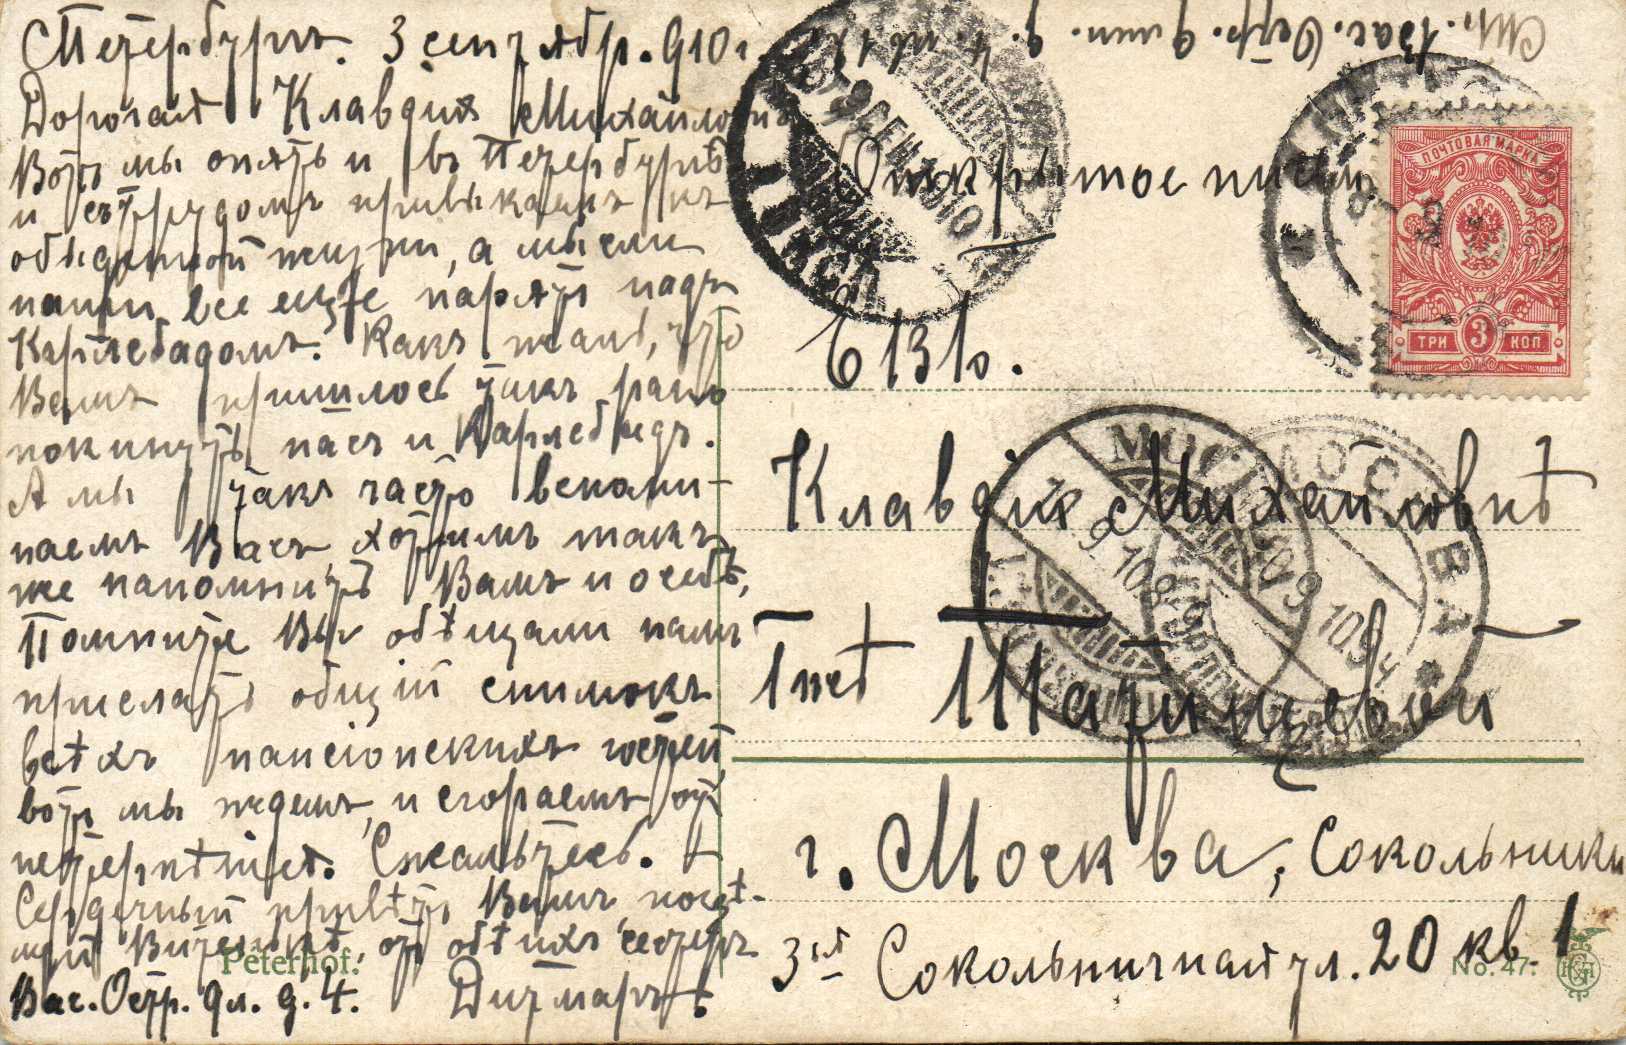 Петербургъ. 3 сентября. 910 г.
Дорогая Клавдия Михайловна
Вотъ мы опять и въ Петербургѣ
и съ трудомъ привыкаемъ къ
обыденной жизни, а мысли
наши все еще парятъ надъ
Карлсбадомъ. Какъ жаль, что
Вамъ пришлось такъ рано
покинуть насъ и Карлсбадъ.
А мы такъ часто вспоми-
наемъ Васъ хотимъ такъ
же напомнить Вамъ и о себѣ,
Помните Вы обѣщали намъ
прислать общій снимокъ
всѣхъ пансіонскихъ гостей,
вотъ мы ждемъ, и сгораемъ отъ
нетерпѣнія. Сжальтесь.
Сердечный привѣтъ Вамъ,
отъ обѣихъ сестеръ
Вас. Остр. 9 л. д. 4. Дитмаръ.
Peterhof.
Вас. Остр. 9 лин. д. 4
Открытое письмо
6 1316.
Клавдіи Михайловнѣ
Г-жѣ
г. Москва, Сокольники
3ья Сокольничная ул. 20 кв. 1
No. 47.
ПОЧТОВАЯ МАРКА
ТРИ 3 КОП.
МОСКВА
9. 10. 9
МОСКВА
9 10. 9 Ч